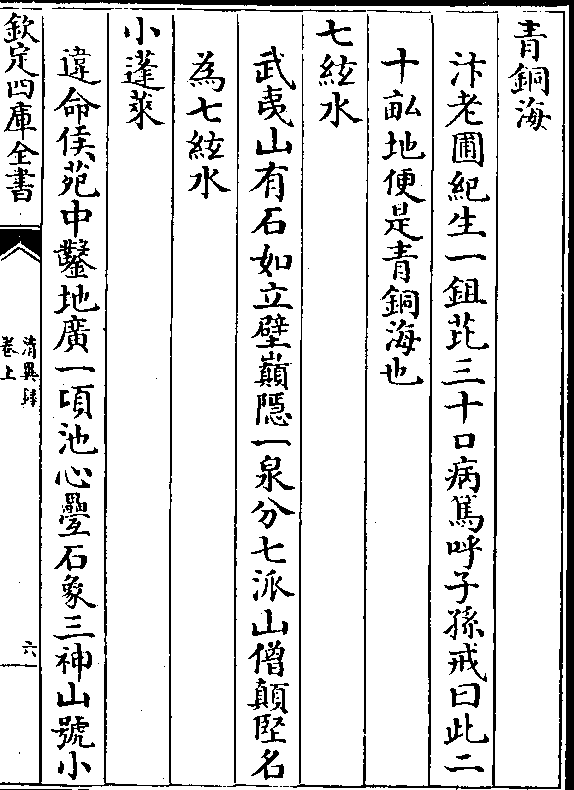 青銅海
汴老圃紀生一鉏芘三十口病篤呼子孫戒曰此二
十畝地便是青銅海也
七絃水
武夷山有石如立壁巔隱一泉分七派山僧顛堅名
為七絃水
小蓬萊
違命侯苑中鑿地廣一頃池心疊石象三神山號小
欽定四庫全書
清異録
卷上
六